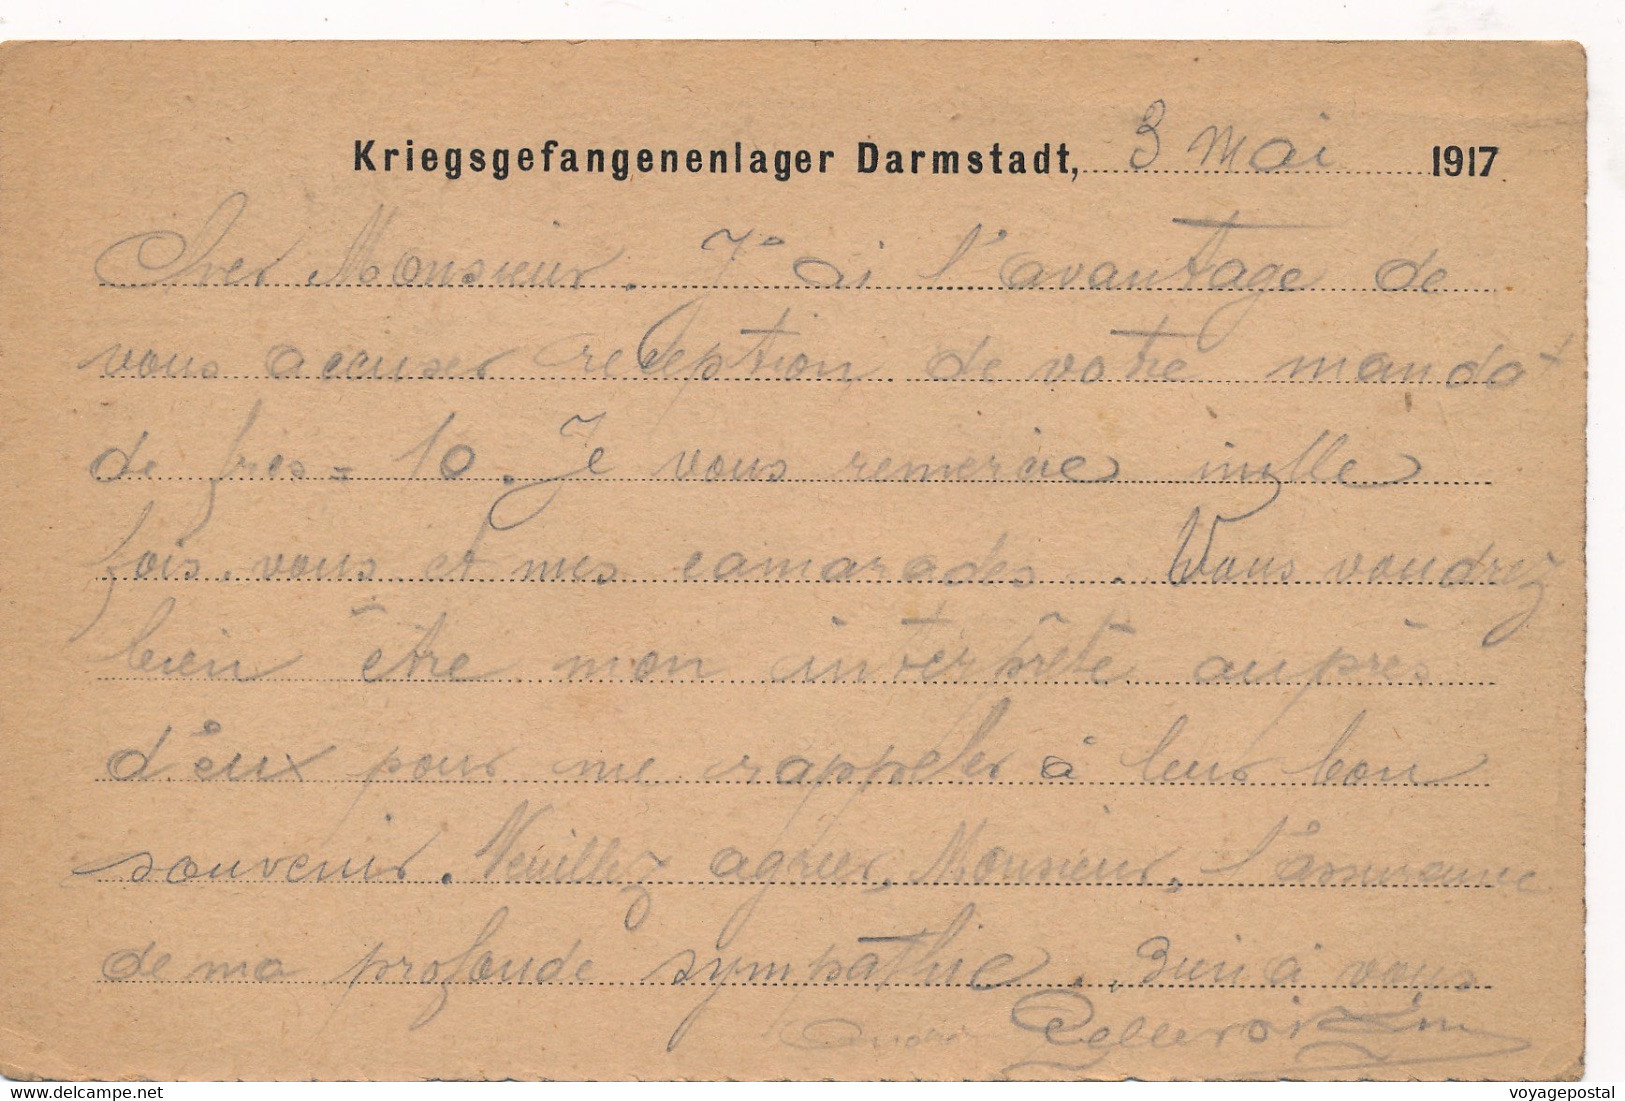 Kriegsgefangenenlager Darmstadt, 3 Mai 1917
Cher Monsieur. J'ai l'avantage de
vous accuser reception de votre mandat
de frcs = 10. Je vous remercie mille
fois, vous et mes camarades. Vous voudrez
bien être mon interprête auprès
d'eux pour me rappeler à leur bon
souvenir. Veuillez agréer, Monsieur, l'assurance
de ma profonde sympathie. Bien à vous
André
voyagepostal